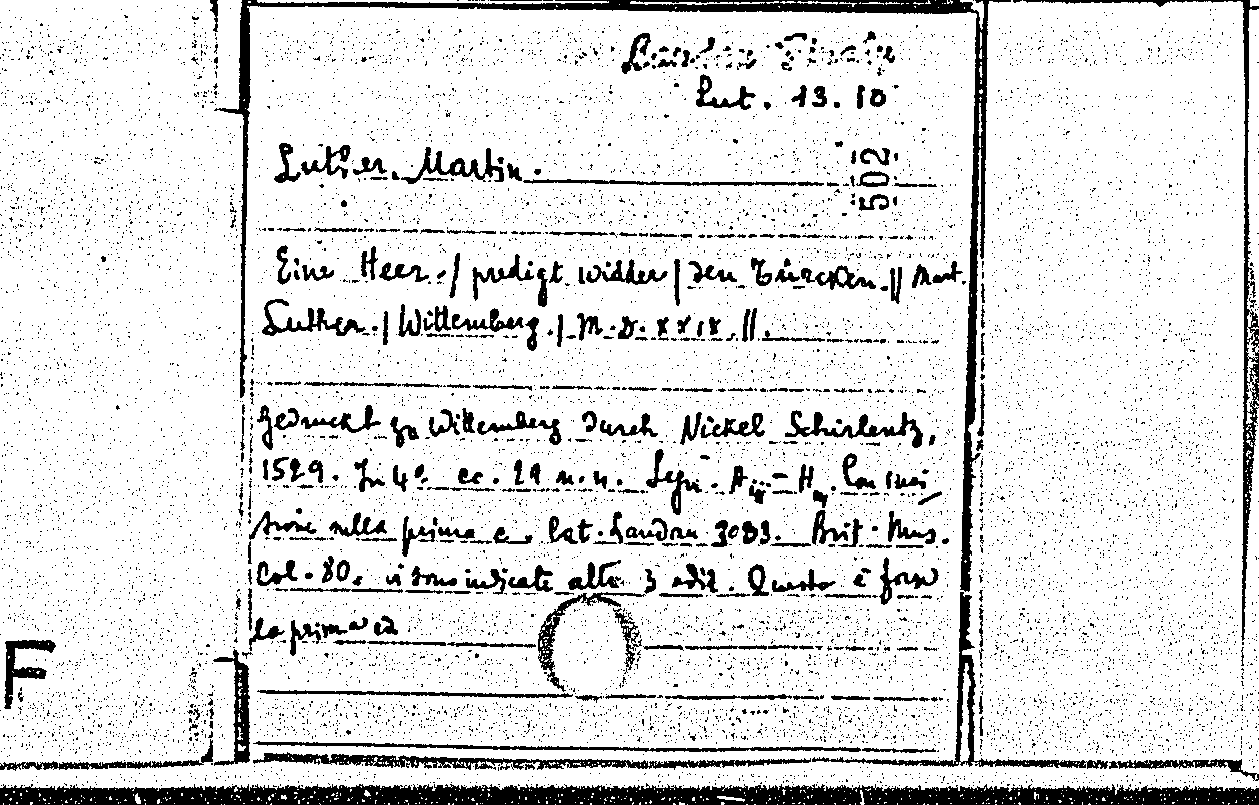 Landau Finaly
Lut. 13. 10
502
Luther, Martin.
Eine Heer-/ predigt widder / den Türcken. // Mart.
Luther. / Wittemberg. / M.D.XXIX. //.
Gedruckt zu Wittemberg durch Nickel Schirlentz,
1529. In 4º. cc. 29 n.n. Segn. A iij - H iij. Con inci
sione nella prima c. Cat. Landau 3083. Brit. Mus.
Col. 80. vi sono indicate altre 3 ediz. Questa è forse
la prima ed.
F